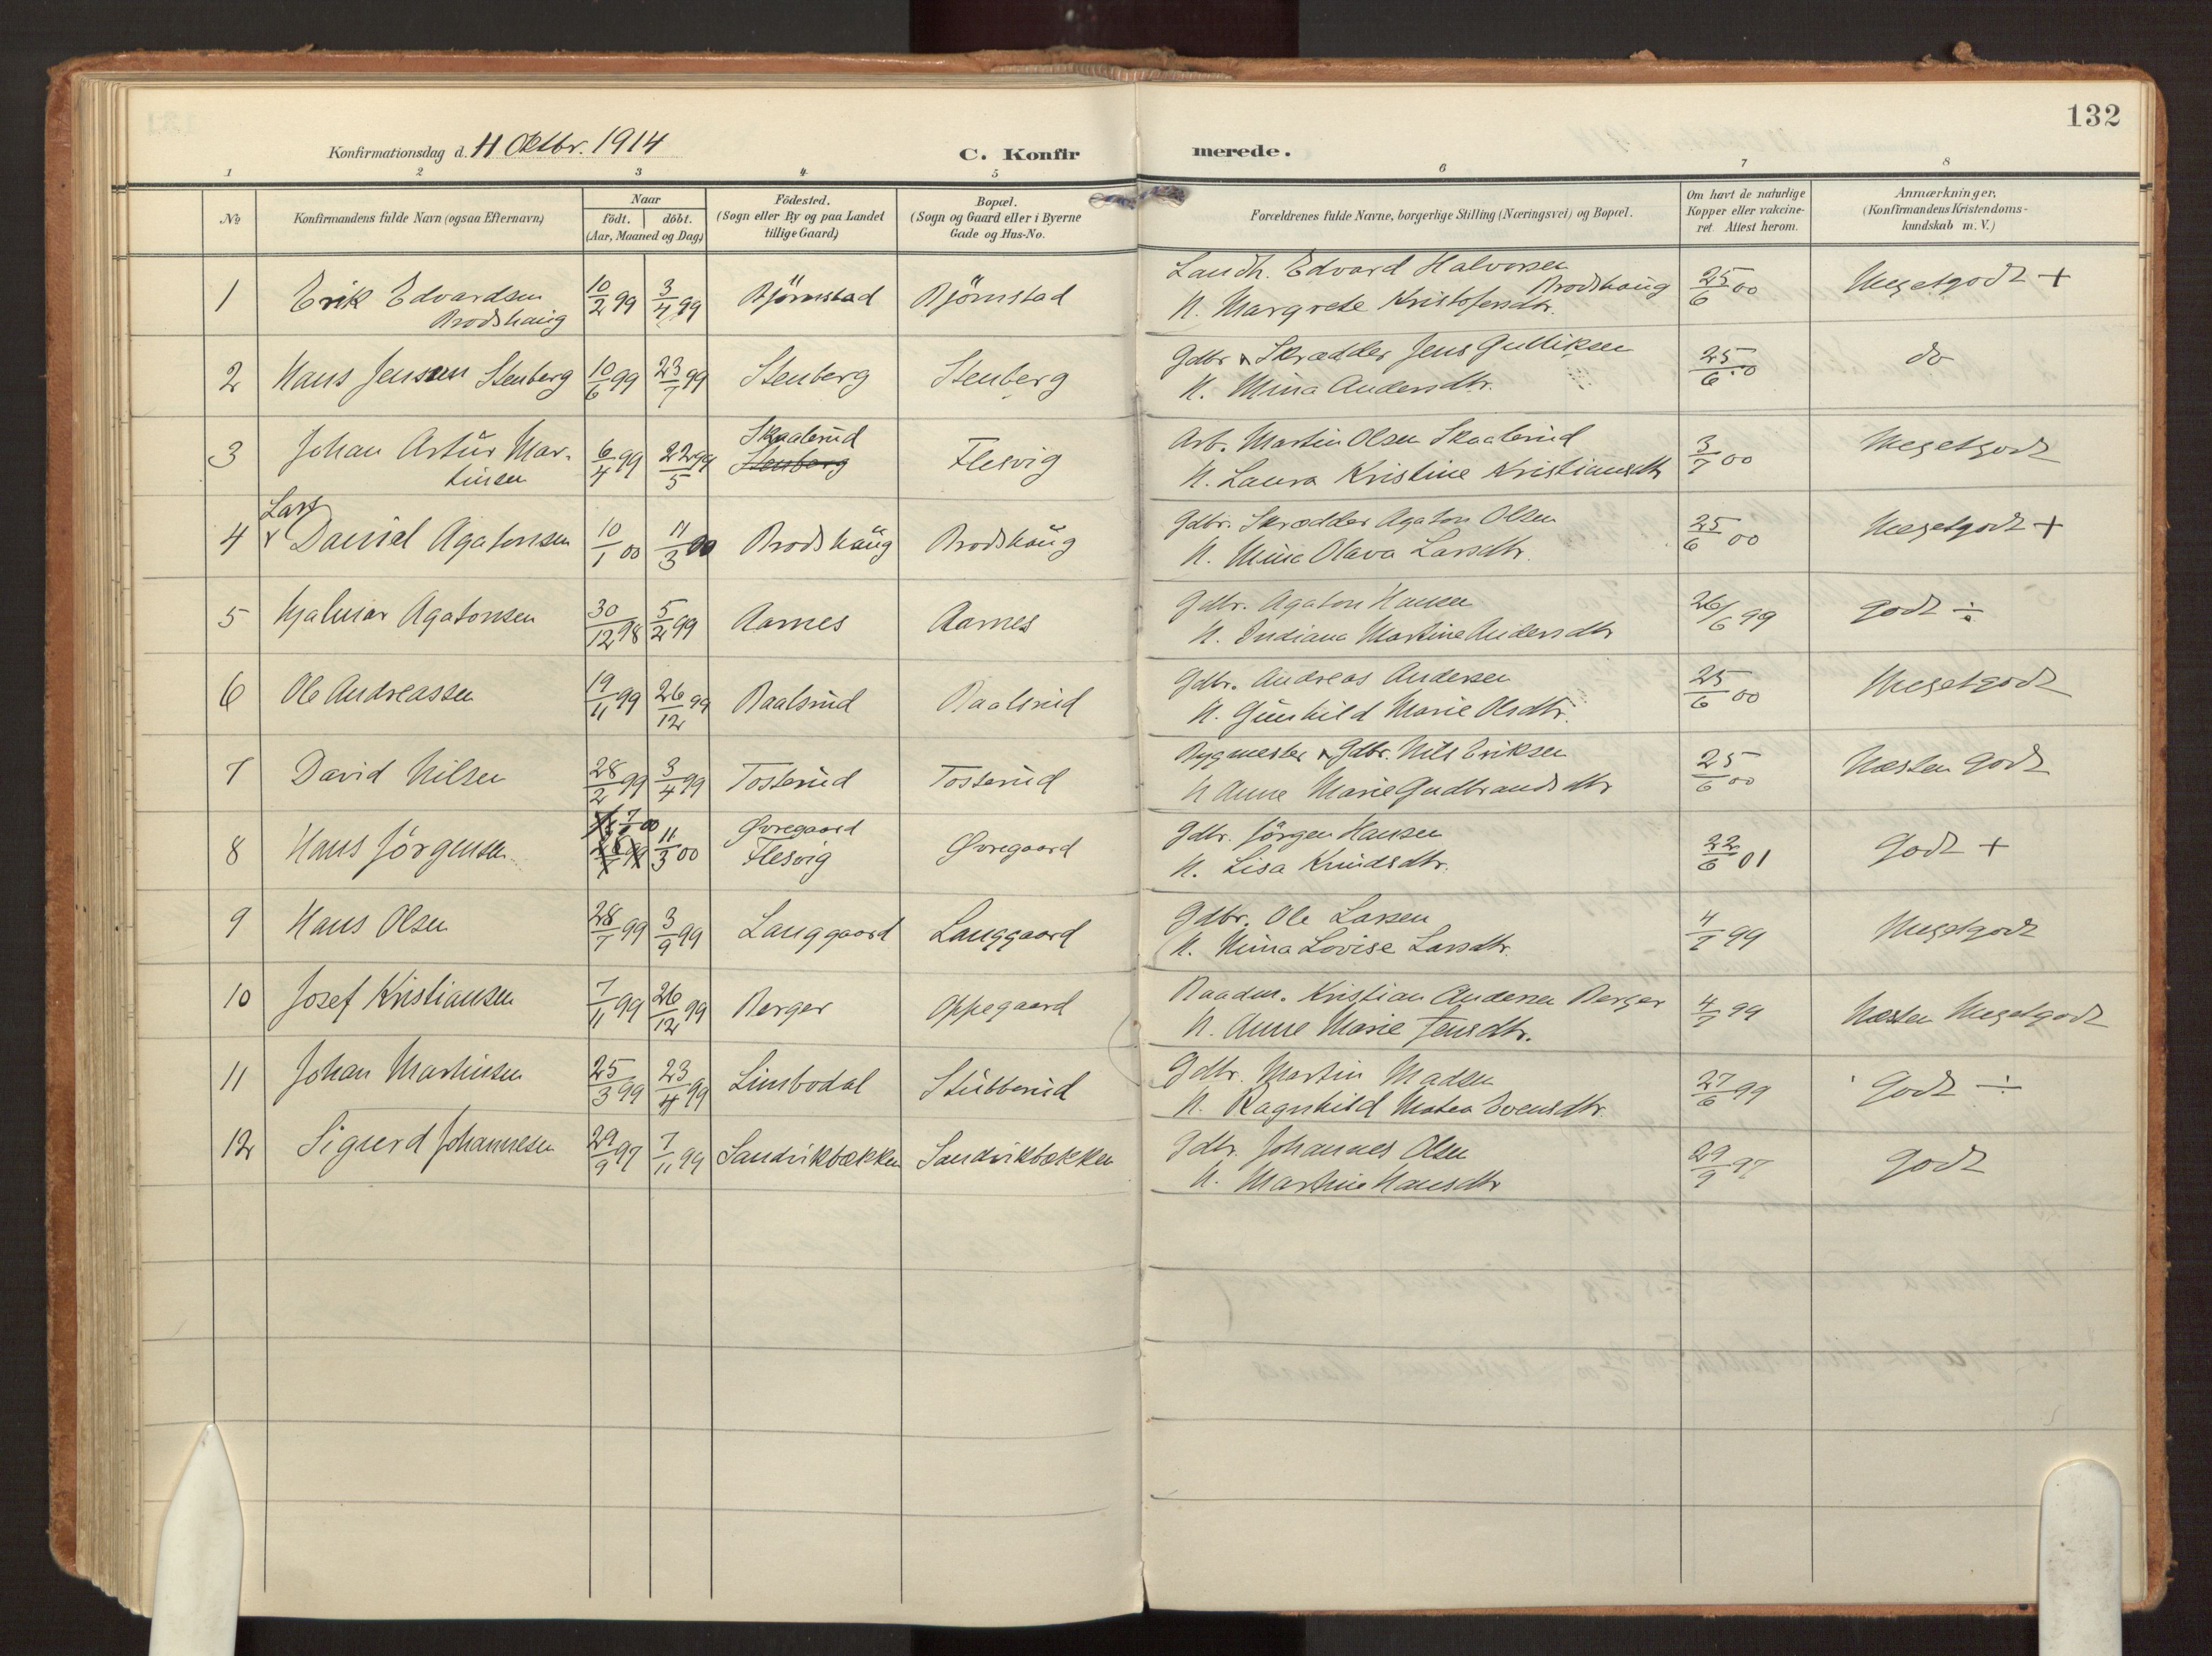 132
Konfirmationsdag d. 11 Oktbr. 1914
C. Konfirmerede.
1 2 3 4 5 6 7 8
No
Konfirmandens fulde Navn (ogsaa Efternavn)
Naar
födt. döbt.
(Aar, Maaned og Dag)
Födested.
(Sogn eller By og paa Landet
tillige Gaard)
Bopæl.
(Sogn og Gaard eller i Byerne
Gade og Hus-No.
Forældrenes fulde Navne, borgerlige Stilling (Næringsvei) og Bopæl.
Om havt de naturlige
Kopper eller vakcine-
ret. Attest herom.
Anmærkninger.
(Konfirmandens Kristendoms-
kundskab m. V.)
1 Erik Edvardsen Brodshaug 10/2 99 3/4 99 Björnstad Björnstad
Landh. Edvard Halvorsen Brodshaug
H. Margrete Kristofersdtr. 25/6 00 Megetgodt +
2 Hans Jensen Stenberg 10/6 99 23/7 99 Stenberg Stenberg
Gdbr & Skrædder Jens Gulliksen
H. Mina Andersdtr. 25/6 00 do
3 Johan Artur Mar-
tinsen 6/4 99 22/5 99 Skaalerud Stenberg Flesvig
Arb. Martin Olsen Skaalerud
H. Laura Kristine Kristiansdtr 3/7 00 Megetgodt
4 Lars Daniel Agatonsen 10/1 00 11/3 00 Brodshaug Brodshaug
Gdbr. Skrædder Agaton Olsen
H. Mina Olava Larsdtr. 25/6 00 Megetgodt +
5 Hjalmar Agatonsen 30/12 98 5/2 99 Aarnes Aarnes
Gdbr. Agaton Hansen
H. Indiana Martine Andersdtr 26/6 99 godt ÷
6 Ole Andreassen 19/11 99 26/12 99 Raalsrud Raalsrud
Gdbr. Andreas Andersen
H. Gunhild Marie Olsdtr. 25/6 00 Megetgodt
7 David Nilsen 28/2 99 3/4 99 Tosterud Tosterud
Bygmester & Gdbr. Nils Eriksen
H Anne Marie Gudbrandsdtr 25/6 00 Næsten godt
8 Hans Jörgensen 11/3 00 Øvregaard Flesvig Øvregaard
Gdbr. Jörgen Hansen
H. Lisa Knudsdtr. 22/6 01 Godt +
9 Hans Olsen 28/7 99 3/9 99 Langgaard Langgaard
Gdbr. Ole Larsen
H. Mina Lovise Larsdtr. 4/7 99 Megetgodt
10 Josef Kristiansen 7/11 99 26/12 99 Berger Oppegaard
Baadm. Kristian Andersen Berger
H. Anne Marie Jensdtr. 4/7 99 Næsten Megetgodt
11 Johan Martinsen 25/3 99 23/4 99 Limbodal Stubberud
Gdbr. Martin Madsen
H. Ragnhild Matea Svensdtr. 27/6 99 Godt ÷
12 Sigurd Johannesen 29/9 97 7/11 99 Sandvikbækken Sandvikbækken
Gdbr. Johannes Olsen
H. Martine Hansdtr 29/9 97 godt